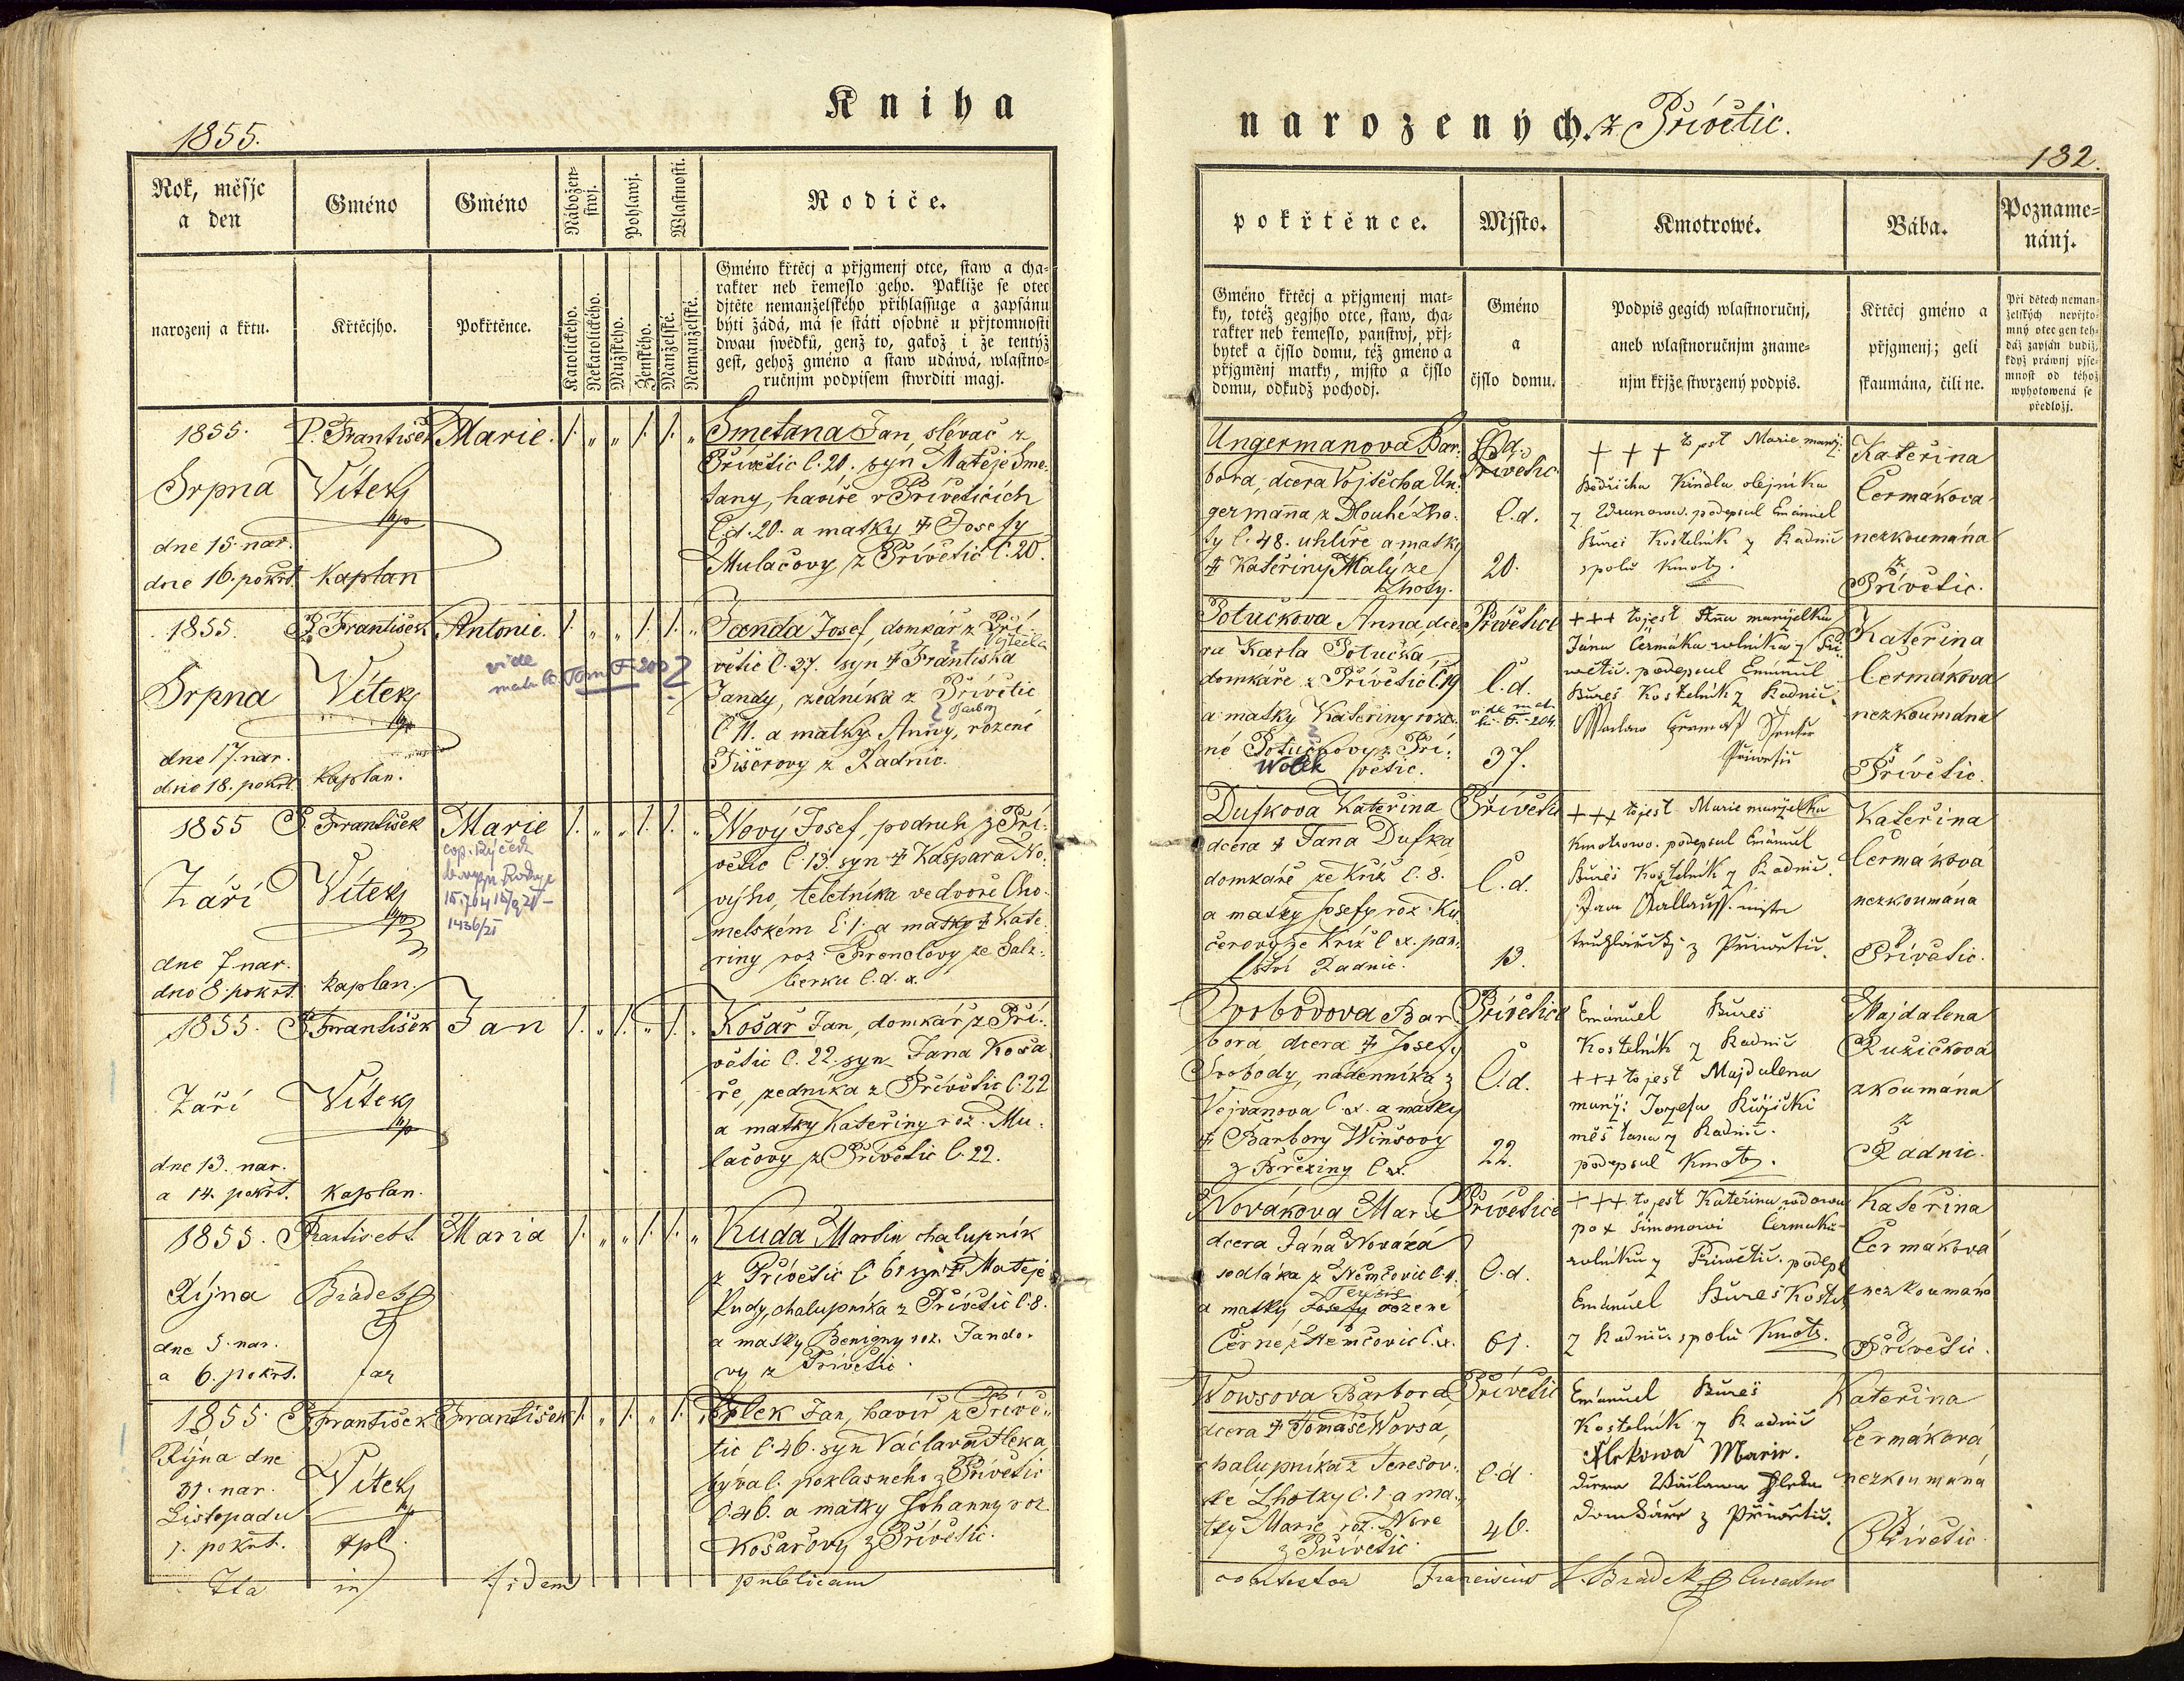 Kniha
narozených. z Přívětic.
1855.
132.
Rok, měsjc
a den
narozenj a křtu.
Gméno
Křtěcjho.
Gméno
Pokřtěnce.
Nábožen-
stwj.
Katolického.
Nekatolického.
Pohlawj.
Mužského.
Ženského.
Wlastnosti.
Manželské.
Nemanželské.
Rodiče.
Gméno křtěcj a přjgmenj otce, staw a cha-
rakter neb řemeslo geho. Pakliže se otec
djtěte nemanželského přihlassuge a zapsánu
býti žádá, má se státi osobně u přjtomnosti
dwau swědků, genž to, gakož i že tentýž
gest, gehož gméno a staw udáwá, wlastno-
ručnjm podpisem stwrditi magj.
pokřtěnce.
Gméno křtěcj a přjgmenj mat-
ky, totéž gegjho otce, staw, cha-
rakter neb řemeslo, panstwj, přj-
bytek a čjslo domu, též gméno a
přjgmenj matky, mjsto a čjslo
domu, odkudž pochodj.
Mjsto.
Gméno
a
čjslo domu.
Kmotrowé.
Podpis gegich wlastnoručnj,
aneb wlastnoručnjm zname-
njm křjže stwrzený podpis.
Bába.
Křtěcj gméno a
přjgmenj; geli
skaumána, čili ne.
Pozname-
nánj.
Při dětech neman-
želských nepřjto-
mný otec gen teh-
dáž zapsán budiž,
když práwnj pjse-
mnost od téhož
wyhotowená se
předložj.
1855.
Srpna
dne 15. nar.
dne 16. pokřt.
P. František
Vítek
kaplan
Marie.
Smetana Jan, slévač z
Přívětic č. 20. syn Matěje Sme-
tany, havíře v Příveticích
č.d. 20. a matky Josefy
Mulačovy z Přívětic č. 20.
Ungermanova Bar-
bora, dcera Vojtěcha Un-
germanna z Dlouhé Lho-
ty č. 48. uhlíře a matky
Kateřiny Malý ze
Lhoty.
Přívětic
č.d.
20.
+ + + to jest Marie manž:
Kindla olejníka
podepsal Emánuel
Bureš Kostelník z Radnic
spolu Kmotr.
Kateřina
Čermákova
nezkoumána
z
Přívětic.
1855.
Srpna
dne 17. nar.
dne 18. pokřt.
P. František
Vítek
kaplan.
Antonie.
vide
Tom F 202
Janda Josef, domkář z Pří-
větic č. 37. syn Františka
Jandy, zedníka z Přívětic
č. 11. a matky Anny, rozené
Fišerovy z Radnic.
Potučkova Anna, dce-
ra Karla Potučka,
domkáře z Přívětic č. 19
a matky Kateřiny roze-
né Potučkovy z Pří-
Wolek větic.
Přívětice
č.d.
37.
+++ to jest Anna manželka
Jána Čermáka rolníka z Při-
wětic. podepsal Emánuel
Bureš Kostelník z Radnic.
Kateřina
Čermákova
nezkoumána
z
Přívětic.
1855
Září
dne 7. nar.
dne 8. pokřt.
P. František
Vítek
kaplan.
Marie
1436/21
Nový Josef, podruh z Pří-
větic č. 13. syn Kašpara No-
výho, teletníka ve dvoře Cho-
melském č. 1. a matky Kate-
řiny roz. Frenclovy ze Salz-
berku č.d. x.
Dufkova Kateřina
dcera Jana Dufka
domkáře ze Kříž č. 8.
a matky Josefy roz. Ku-
čerovy ze Kříž č x. pan-
ství Radnic.
Přívětic
č.d.
13.
+++ to jest Marie manželka
podepsal Emánuel
Bureš Kostelník z Radnic.
z Přiwětic.
Kateřina
Čermáková
nezkoumána
z
Přívětic.
1855.
Září
dne 13. nar.
a 14. pokřt.
P. František
Vítek
kaplan.
Jan
Košař Jan, domkář z Pří-
větic č. 22. syn Jana Koša-
ře, zedníka z Přívětic č. 22
a matky Kateřiny roz. Mu-
lačovy z Přívětic č. 22.
Svobodova Bar-
bora dcera Josefy
Svobody, nádenníka z
Vejvanova č x. a matky
Barbory Winšovy
z Březiny č x.
Přívětice
č.d.
22.
Emánuel Bureš
Kostelník z Radnic
+++ to jest Majdalena
manž: Jozefa Růžički
měšťana z Radnic.
podepsal Kmotr.
Majdalena
Ružičková
zkoumána
z
Radnic.
1855.
Října
dne 5. nar.
a 6. pokřt.
Bradek
far
Maria
Kuda Martin chalupník
z Přívětic č. 61 syn Matěje
Kudy, chalupníka z Přívětic č. 8.
a matky Benigny roz. Jando-
vy z Přívětic.
Novákova Marie
dcera Jána Nováká
sedláka z Němčovic č. 11.
a matky Josefy Terezie rozené
Černé z Němčovic č. x.
Přívětice
č.d.
61.
+++ to jest Kateřina wdowa
po x Šimonowi Čermáku
rolníku z Přiwětic. podeps
Emánuel Bureš Kostel
z Radnic. spolu Kmotr.
Kateřina
Čermáková
nezkoumána
z
Přívětic.
1855.
Října dne
31. nar.
Listopadu
1. pokřt.
P. František
Vítek
kpl.
František
Flek Jan, havíř z Přívě-
tic č. 46. syn Václava Fleka,
býval. poklasného z Přívětic
č. 46. a matky Johanny roz.
Košařovy z Přívětic.
Wowsova Barbora
dcera Tomáše Wovsa,
chalupníka z Terešov-
ské Lhotky č. 1. a ma-
tky Marie roz. Nové
z Přívětic.
Přívětic
č.d.
46.
Emánuel Bureš
Kostelník z Radnic
Flekowa Marie.
dcera Wáclawa Fleka
domkáře z Přiwětic.
Kateřina
Čermáková
nezkoumaná
z
Přívětic.
Ita in fidem publicam
contestor Franciscus Bradek Curatus